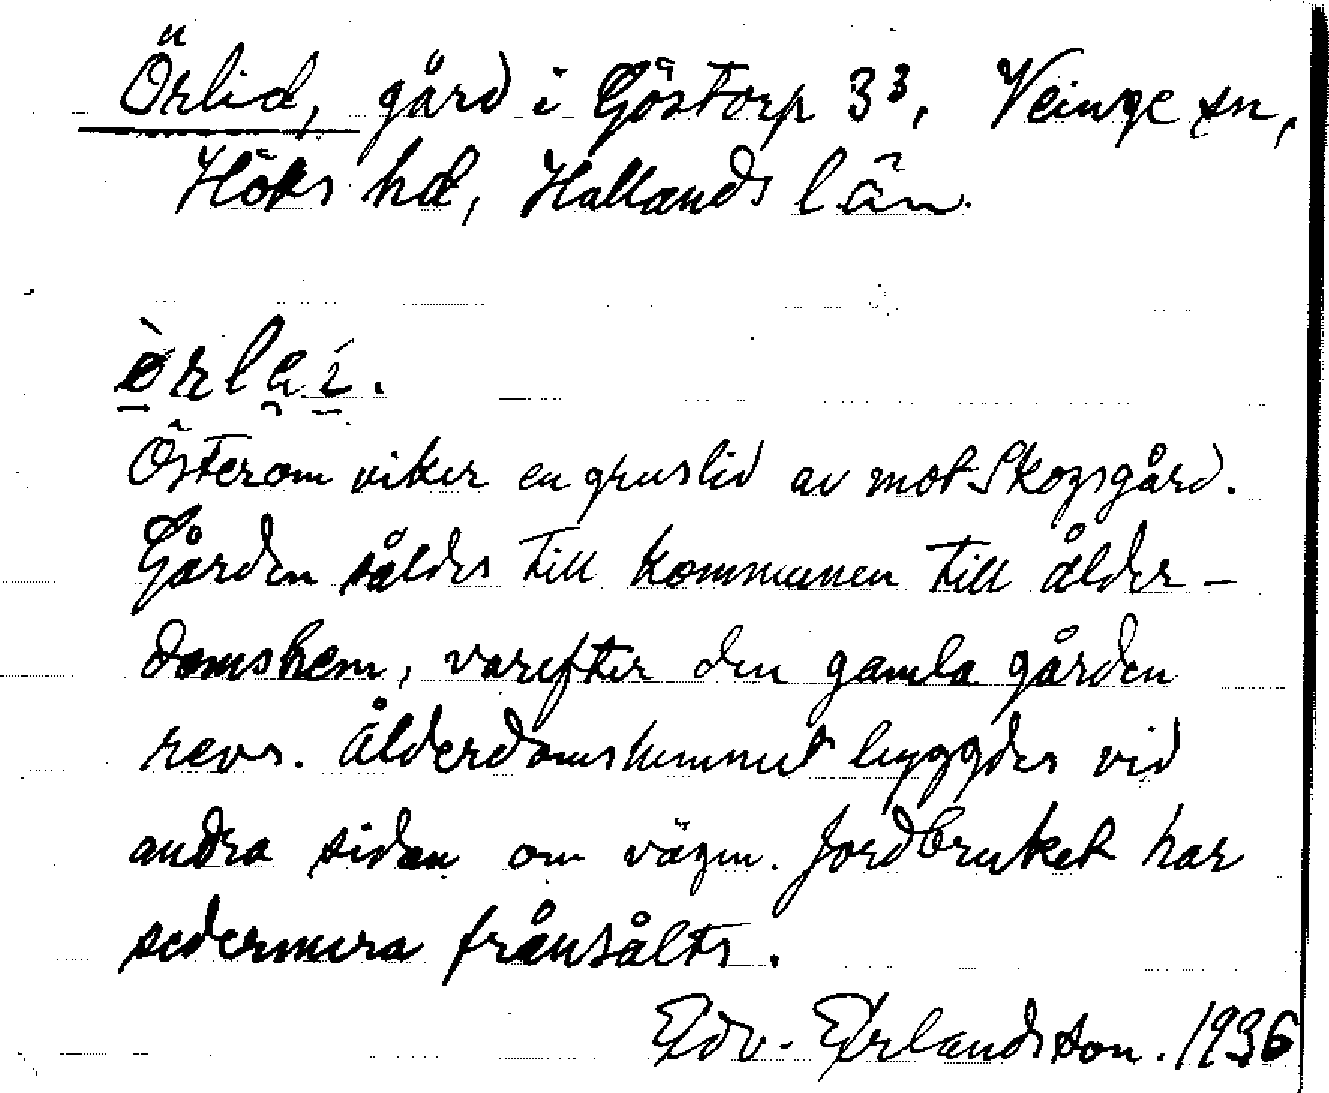 Örlid, gård i Göstorp 3³, Veinge sn,
Höks hd, Hallands län.
Österom viker en gruslid av mot Skogsgård.
Gården såldes till kommunen till ålder-
domshem, varefter den gamla gården
revs. Ålderdomshemmet byggdes vid
andra sidan om vägen. Jordbruket har
sedermera frånsålts.
Edv. Erlandsson. 1936